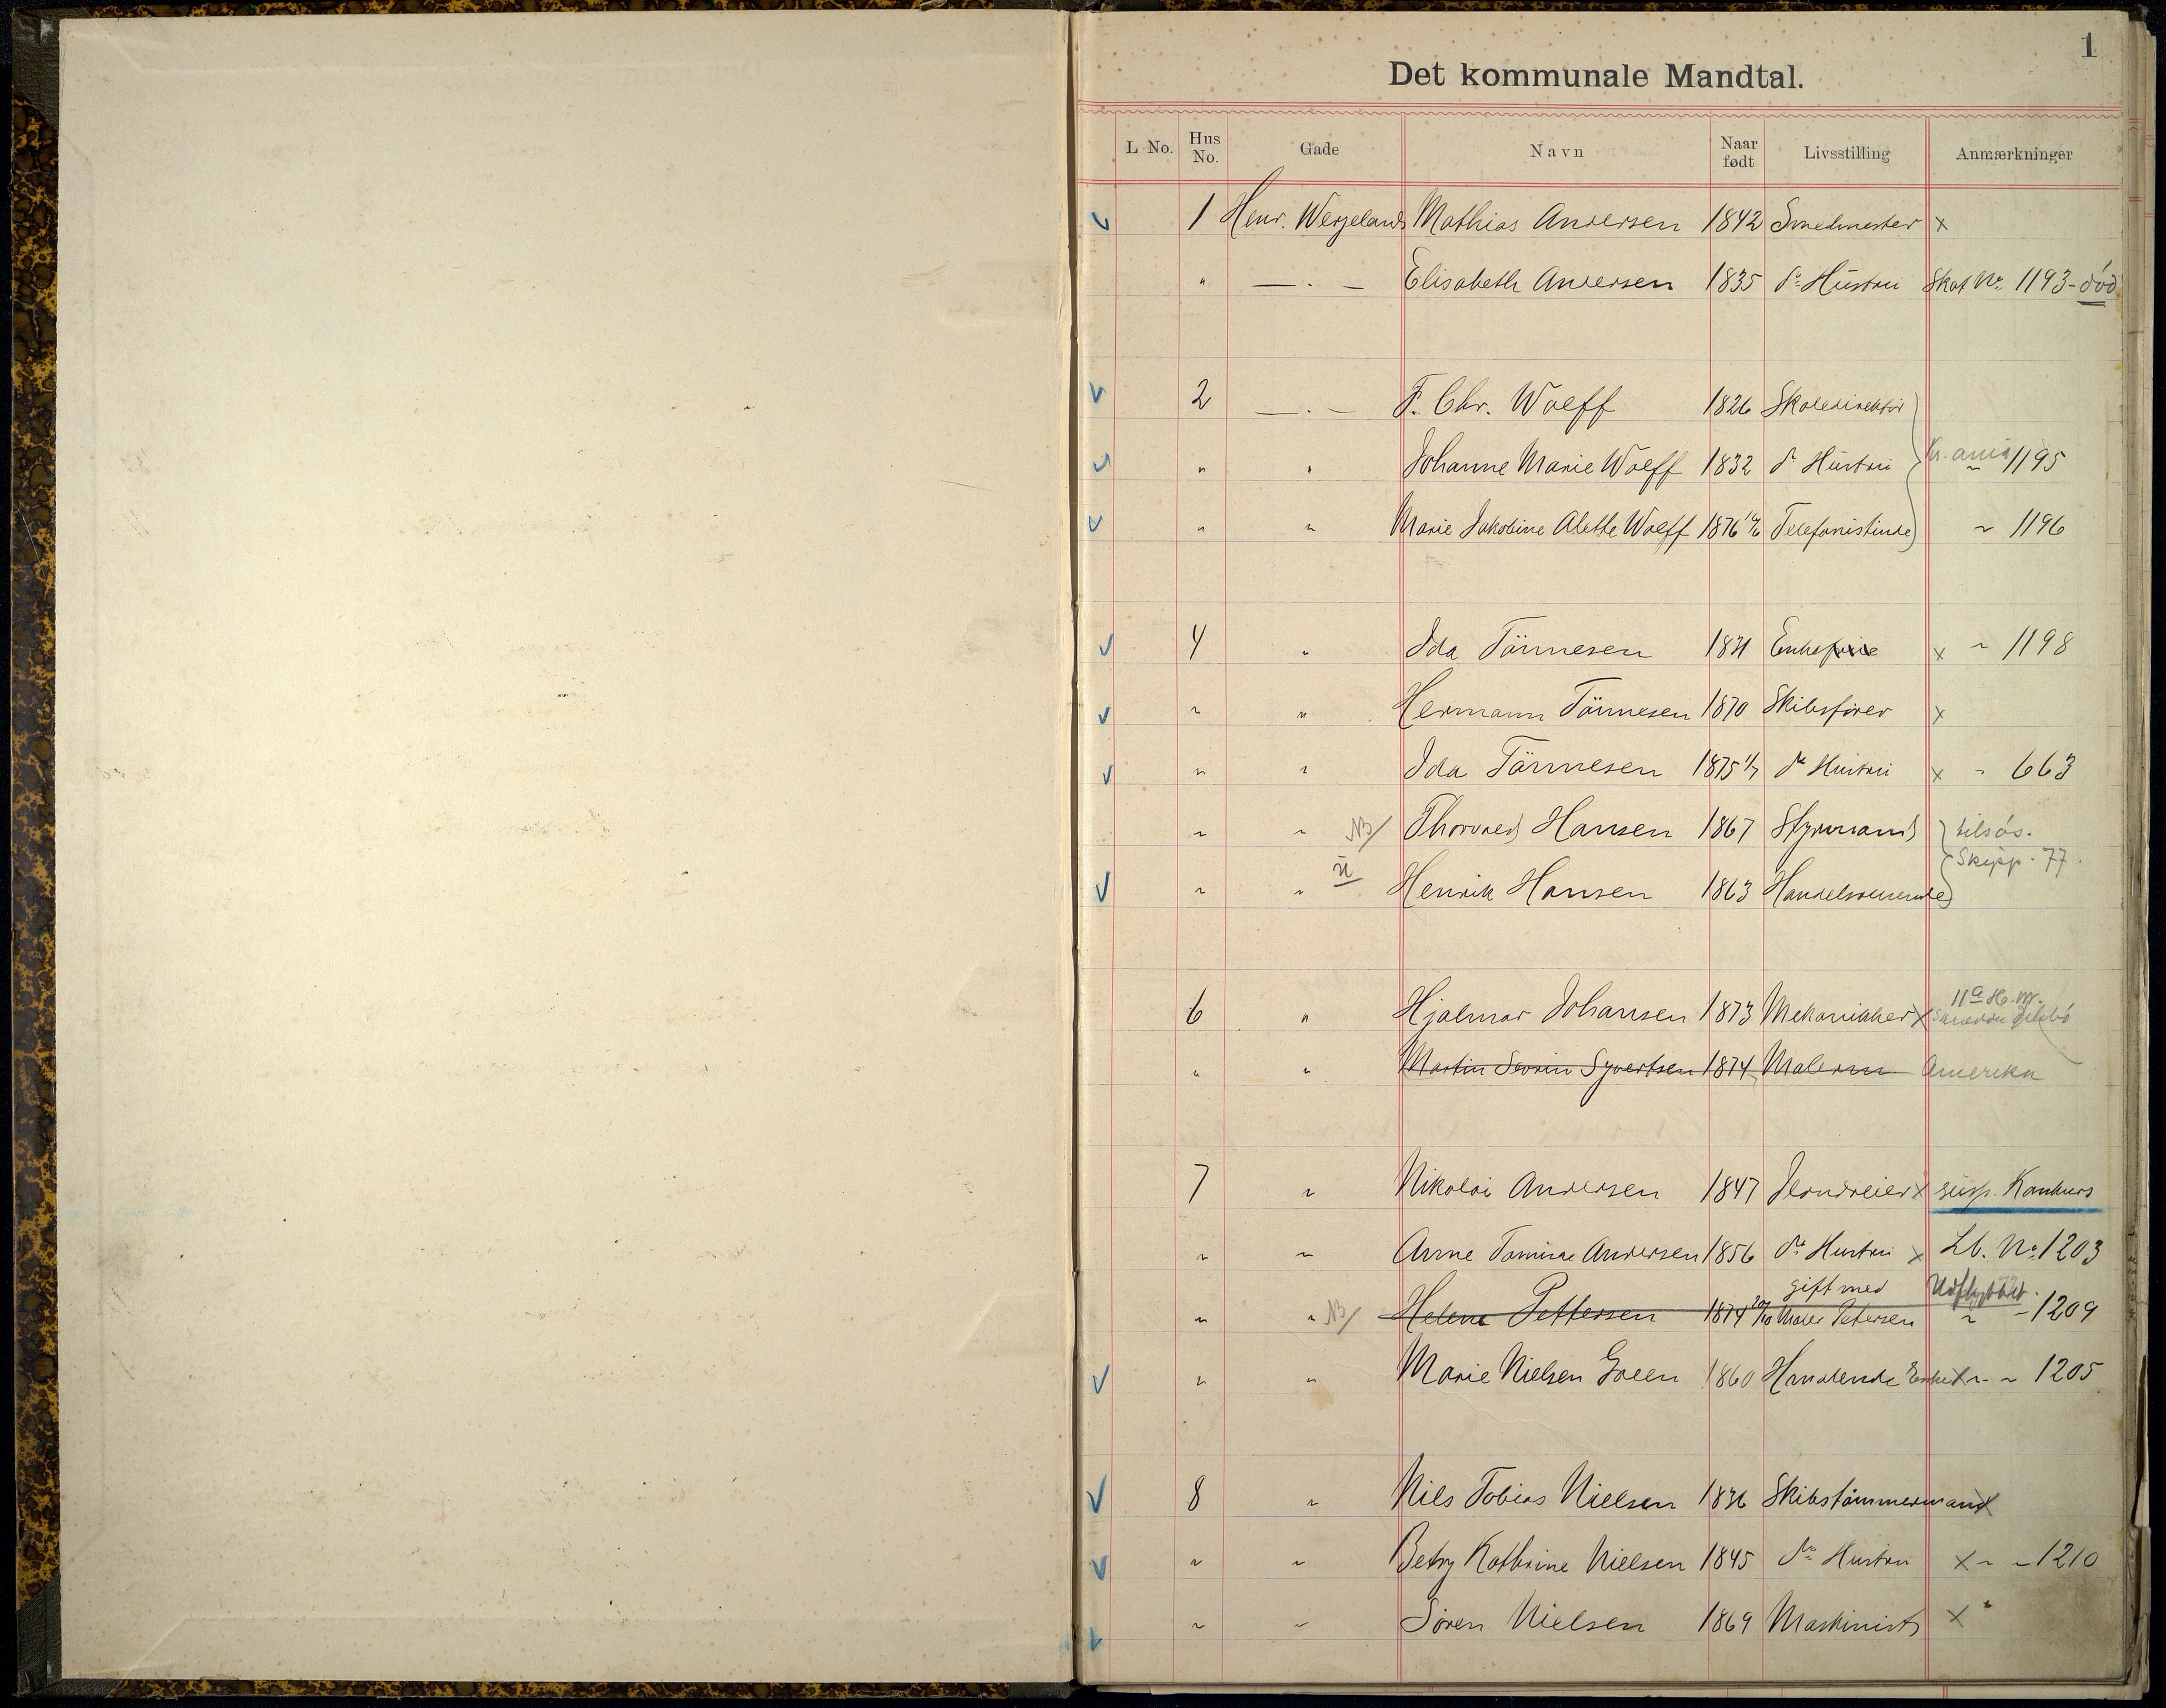 1
Det kommunale Mandtal.
L No. Hus No. Gade Navn Naar født Livsstilling Anmærkninger
1 Henr. Wergelands Mathias Andersen 1842 Smedmester x
" — . — Elisabeth Andersen 1835 ds Hustru Skat No. 1193 - död
2 — . — F. Chr. Wolff 1826 Skoledirektör
" " Johanne Marie Wolff 1832 ds Hustru Kr.ania ~ 1195
" " Marie Jakobine Alette Wolff 1876 Telefonistinde ~ 1196
4 " Ida Tönnesen 1831 Enkefrue x ~ 1198
" " Hermann Tönnesen 1870 Skibsförer x
" " Ida Tönnesen 1875 1/7 ds Hustru x ~ 663
" " NB/ Thorvald Hansen 1867 Styrmand tilsös.
Skipp. 77.
" " Henrik Hansen 1863 Handelsreisende
6 " Hjalmar Johansen 1873 Mekanikker x 11a H. W.
" " Martin Sevrin Syvertsen 1874 Malersv Amerika
7 " Nikolai Andersen 1847 Jerndreier x susp. Konkurs
" " Anne Tomine Andersen 1856 ds Hustru x Lb. No. 1203
gift med Udflyttet.
" " NB/ Helene Pettersen 1874 Maler Petersen " - 1209
" " Marie Nielsen Green 1860 Handlende Enke x ~ ~ 1205
8 " Nils Tobias Nielsen 1836 Skibstömmermand x
" " Betzy Kathrine Nielsen 1845 ds Hustru x ~ ~ 1210
" " Sören Nielsen 1869 Maskinist x "